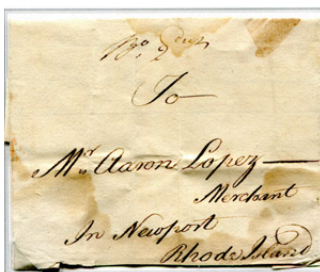 To
Mr Aaron Lopez
Merchant
In Newport
Rhode Island